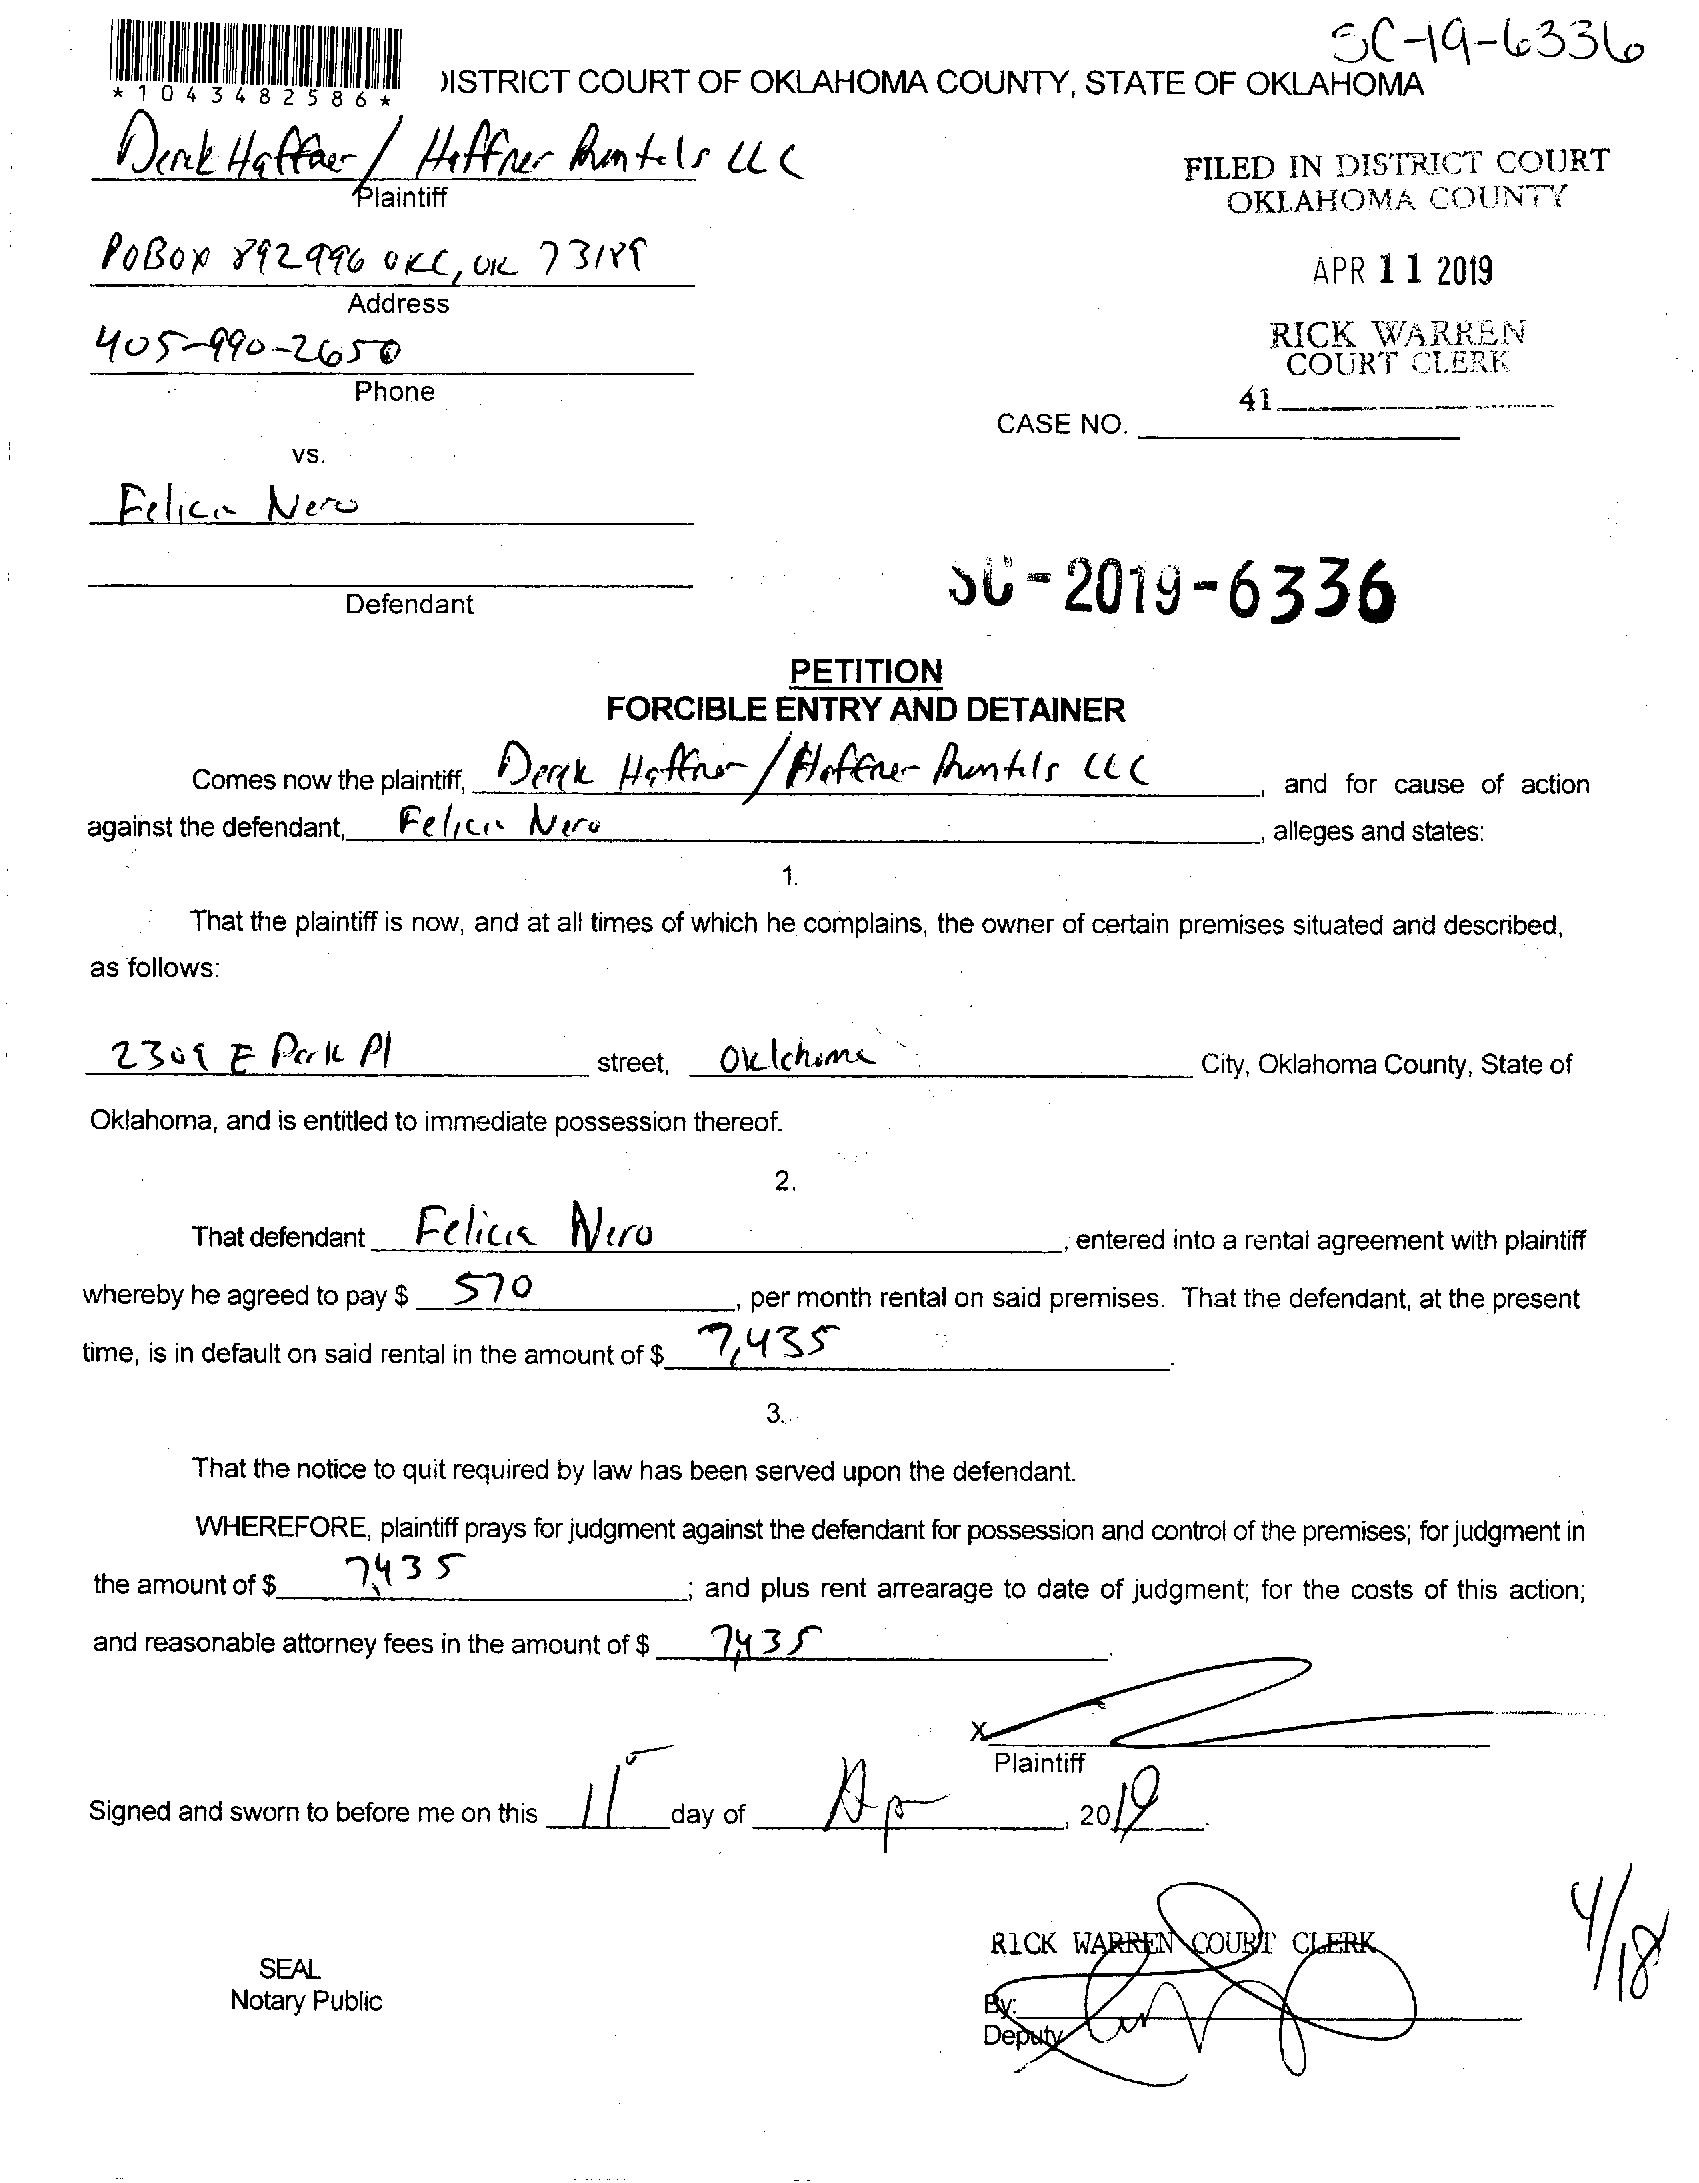 SC-19-6336
* 1 0 4 3 4 8 2 5 8 6 *
DISTRICT COURT OF OKLAHOMA COUNTY, STATE OF OKLAHOMA
Derek Haffner / Haffner Rentals LLC
Plaintiff
FILED IN DISTRICT COURT
OKLAHOMA COUNTY
PO Box 892996 OKC, OK 73189
Address
APR 11 2019
405-990-2650
Phone
RICK WARREN
COURT CLERK
41
CASE NO.
vs.
Felicia Nero
Defendant
SC-2019-6336
PETITION
FORCIBLE ENTRY AND DETAINER
Comes now the plaintiff, Derek Haffner / Haffner Rentals LLC, and for cause of action
against the defendant, Felicia Nero, alleges and states:
1.
That the plaintiff is now, and at all times of which he complains, the owner of certain premises situated and described,
as follows:
2309 E Park Pl street, Oklahoma City, Oklahoma County, State of
Oklahoma, and is entitled to immediate possession thereof.
2.
That defendant Felicia Nero, entered into a rental agreement with plaintiff
whereby he agreed to pay $ 570, per month rental on said premises. That the defendant, at the present
time, is in default on said rental in the amount of $ 7,435.
3.
That the notice to quit required by law has been served upon the defendant.
WHEREFORE, plaintiff prays for judgment against the defendant for possession and control of the premises; for judgment in
the amount of $ 7,435; and plus rent arrearage to date of judgment; for the costs of this action;
and reasonable attorney fees in the amount of $ 7,435.
X
Plaintiff
Signed and sworn to before me on this 11 day of Apr, 2019
4/18
RICK WARREN COURT CLERK
SEAL
Notary Public
By:
Deputy